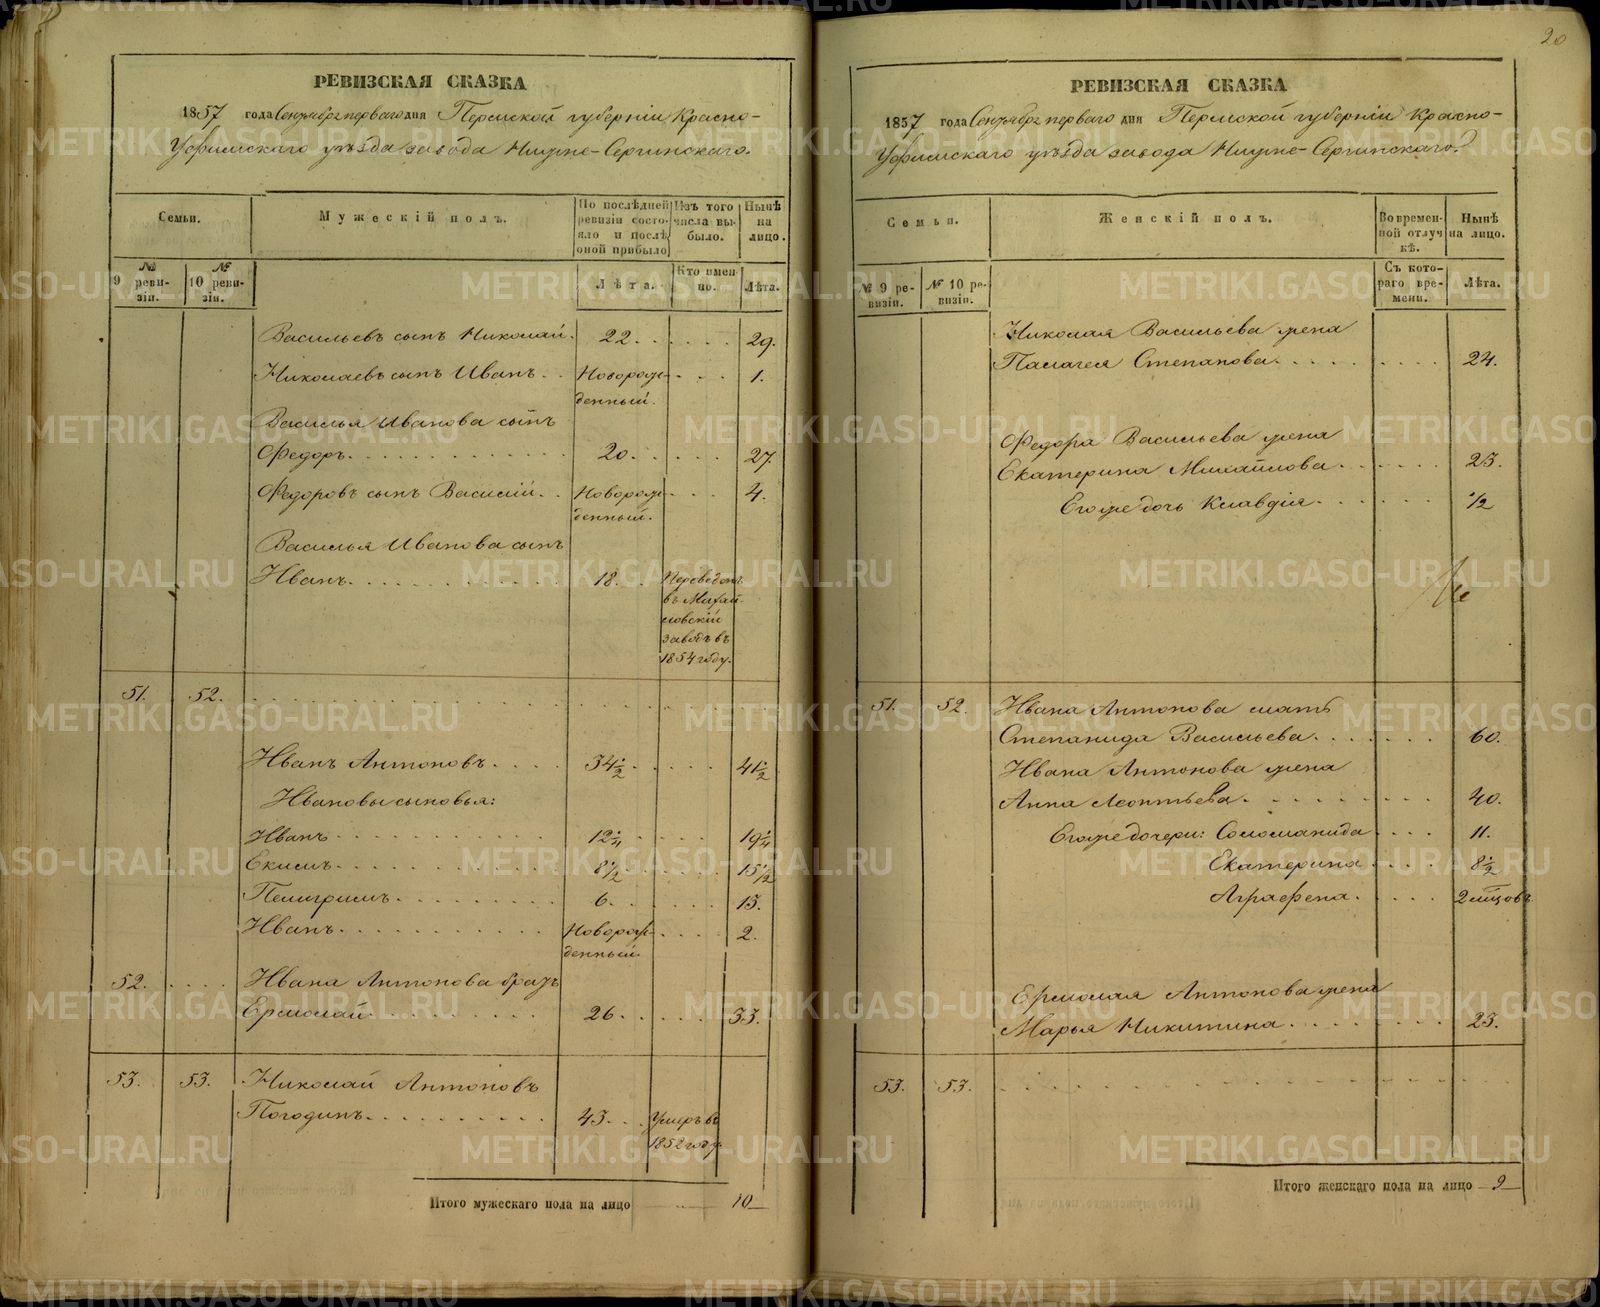 РЕВИЗСКАЯ СКАЗКА
1857 года Сентября перваго дня Пермской губерніи Красно-
Уфимскаго уѣзда завода Нижне-Сергинскаго.
Семьи.
Мужескій полъ.
По послѣдней ревизіи состояло и послѣ оной прибыло
Изъ того числа выбыло.
Нынѣ на лицо.
№ 9 ревизіи.
№ 10 ревизіи.
Лѣта.
Кто именно.
Лѣта.
Васильевъ сынъ Николай. 22. 29.
Николаевъ сынъ Иванъ. Новорож- 1.
денный.
Василья Иванова сынъ
Федоръ. 20. 27.
Федоровъ сынъ Василій. Новорож- 4.
денный.
Василья Иванова сынъ
Иванъ. 18. Переведенъ
въ Михай-
ловскій
заводъ въ
1854 году.
51. 52.
Иванъ Антоновъ. 34½ 41½
Ивановы сыновья:
Иванъ 12¼ 19¼
Екимъ. 8½ 15½
Пелигримъ. 6. 13.
Иванъ. Новорож- 2.
денный.
52. Ивана Антонова братъ
Ермолай. 26. 33.
53. 53. Николай Антоновъ
Погодинъ. 43. Умеръ въ
1852 году.
Итого мужескаго пола на лицо 10
20
РЕВИЗСКАЯ СКАЗКА
1857 года Сентября перваго дня Пермской губерніи Красно-
Уфимскаго уѣзда завода Нижне-Сергинскаго.
Семьи.
Женскій полъ.
Во временной отлучкѣ.
Нынѣ на лицо.
№ 9 ревизіи.
№ 10 ревизіи.
Съ котораго времени.
Лѣта.
Николая Васильева жена
Палагея Степанова. 24.
Федора Васильева жена
Екатерина Михайлова. 23.
Его же дочь Клавдія ½
51. 52. Ивана Антонова мать
Степанида Васильева. 60.
Ивана Антонова жена
Анна Леонтьева. 40.
Его же дочери: Соломанида 11.
Екатерина 8½
Аграфена. 2 мѣсцовъ
Ермолая Антонова жена
Марья Никитина. 23.
53. 53.
Итого женскаго пола на лицо 9
METRIKI.GASO-URAL.RU